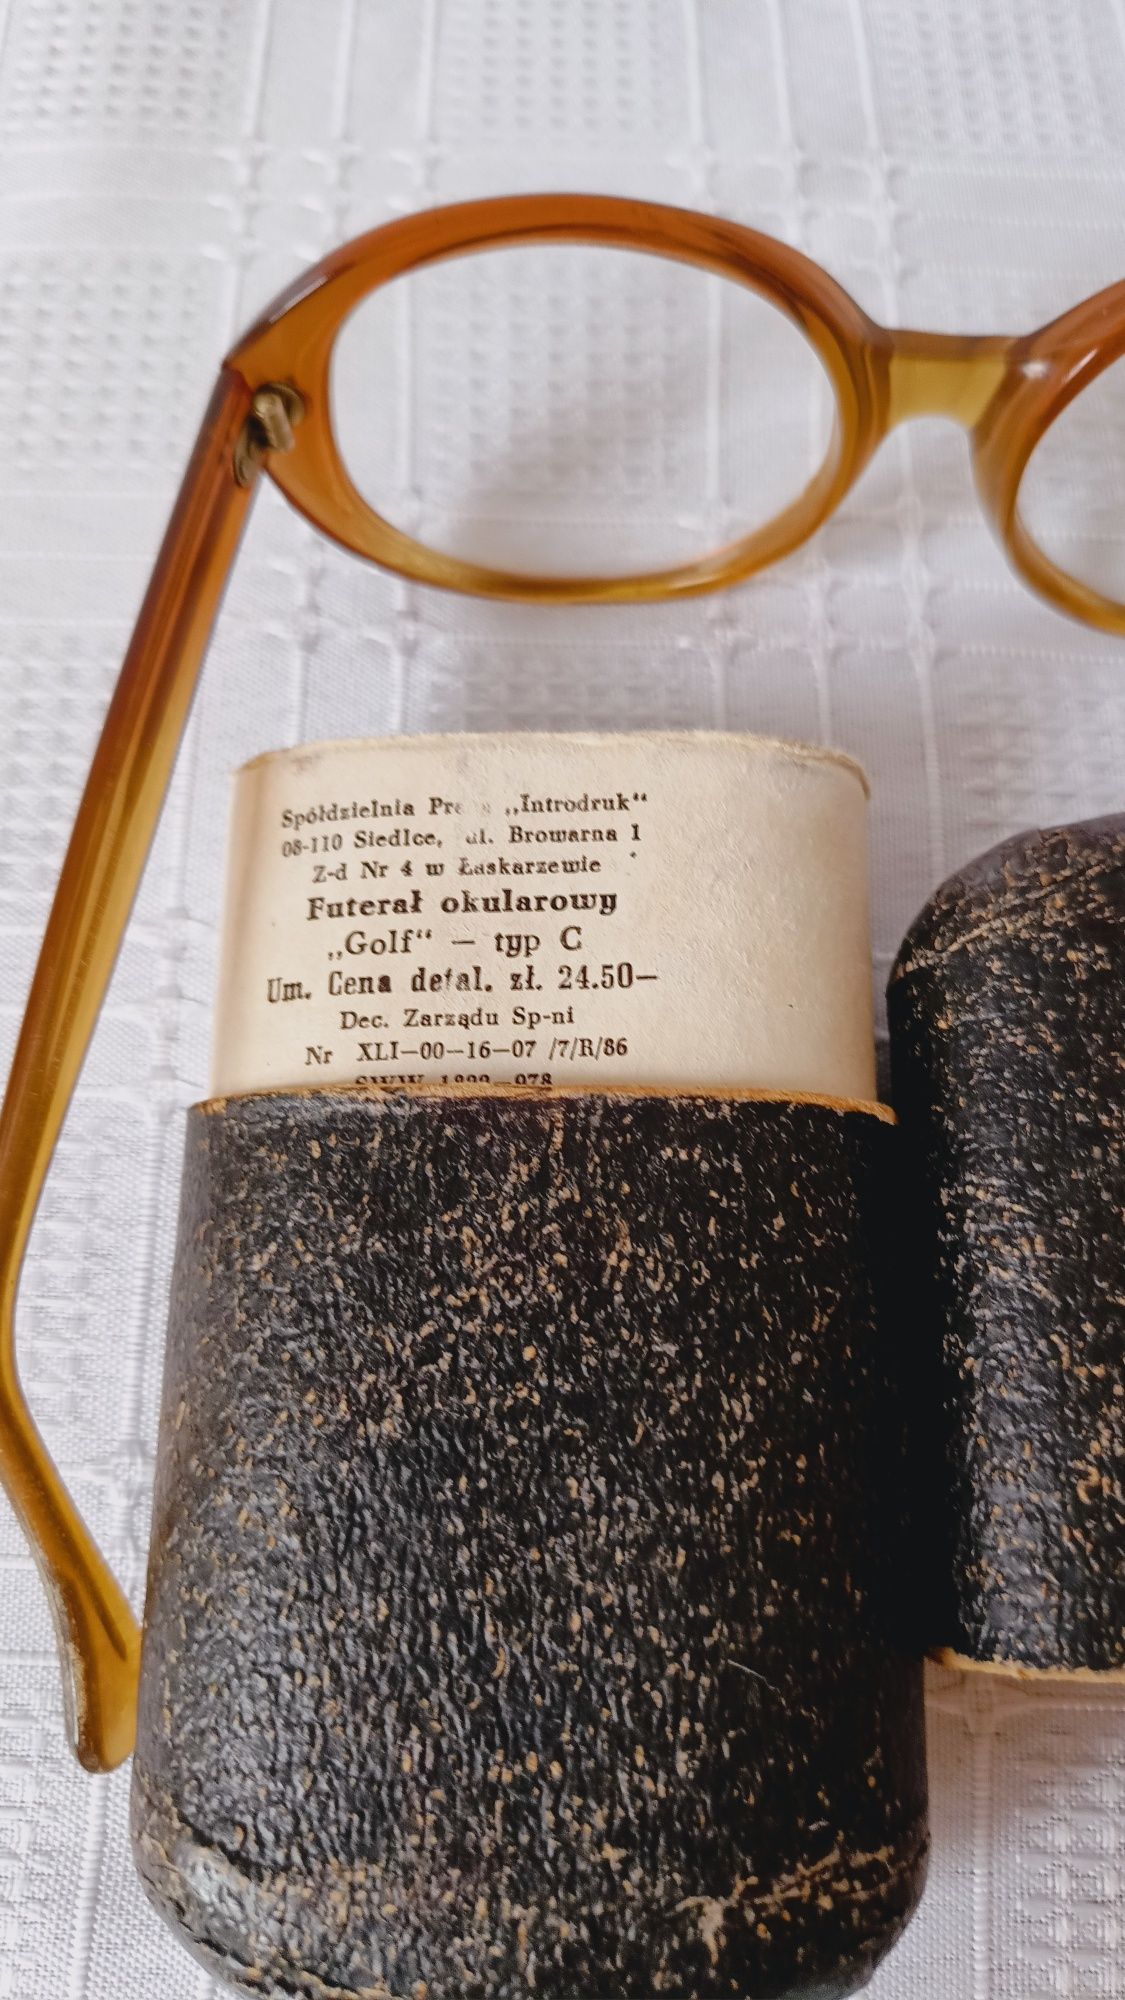 Spółdzielnia „Introdruk“
08-110 Siedlce, ul. Browarna 1
Z-d Nr 4 w Łaskarzewie
Futerał okularowy
„Golf“ — typ C
Um. Cena detal. zł. 24.50—
Dec. Zarządu Sp-ni
Nr XLI—00—16—07 /7/R/86
SWW